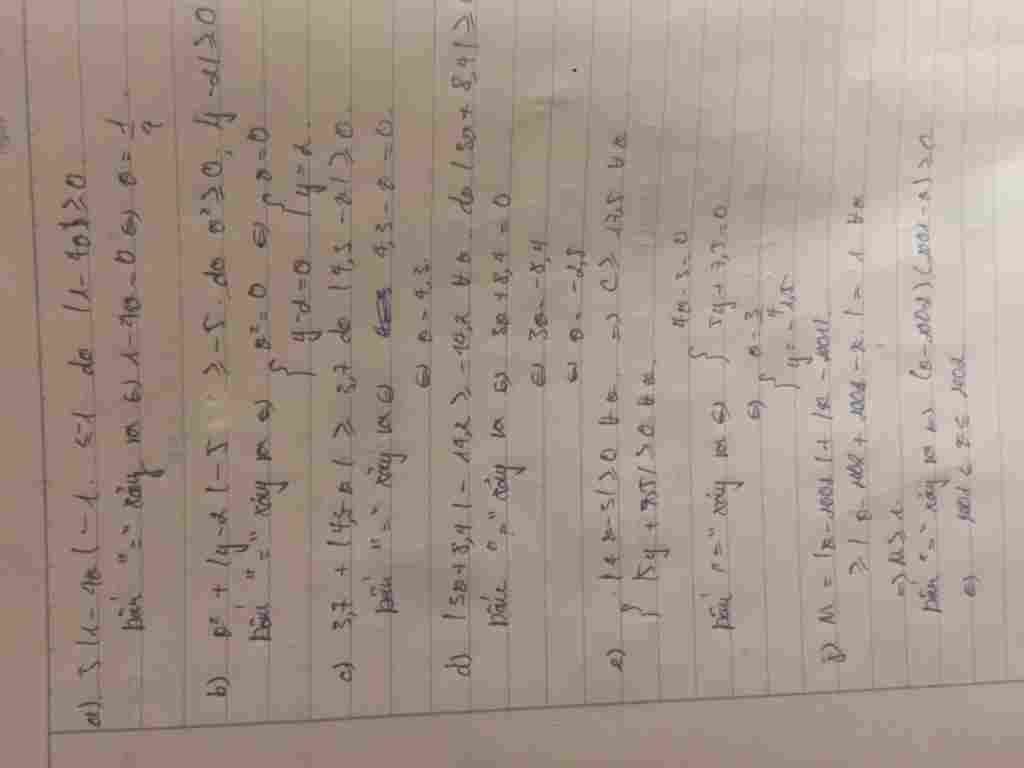 a) 3|1-4x|-1 ≥ -1 do |1-4x| ≥ 0
Dấu "=" xảy ra ⇔ 1-4x=0 ⇔ x=1/4
b) x² + |y-2| - 5 ≥ -5 do x² ≥ 0, |y-2| ≥ 0
Dấu "=" xảy ra ⇔ { x²=0 ⇔ { x=0
y-2=0 y=2
c) 3,7 + |4,3-x| ≥ 3,7 do |4,3-x| ≥ 0
Dấu "=" xảy ra ⇔ 4,3-x=0
⇔ x=4,3
d) |3x+8,4| - 14,2 ≥ -14,2 ∀x do |3x+8,4| ≥
Dấu "=" xảy ra ⇔ 3x+8,4=0
⇔ 3x=-8,4
⇔ x=-2,8
e) { |4x-3| ≥ 0 ∀x => C ≥ 17,5 ∀x
|5y+7,5| ≥ 0 ∀x
4x-3=0
Dấu "=" xảy ra ⇔ { 5y+7,5=0
⇔ { x=3/4
y=-1,5
M = |x-2002| + |x-2001|
≥ |x-2002+2001-x| = 1 ∀x
Dấu "=" xảy ra ⇔ (x-2002)(2001-x) ≥ 0
⇔ 2001 ≤ x ≤ 2002